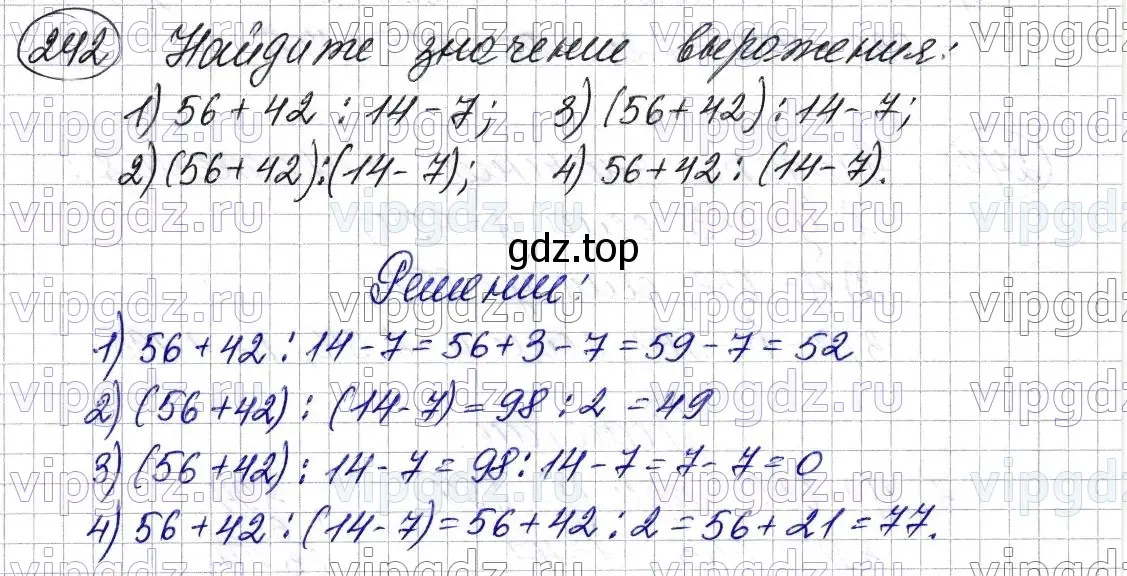 242 Найдите значение выражения:
1) 56 + 42 : 14 - 7; 3) (56 + 42) : 14 - 7;
2) (56 + 42) : (14 - 7); 4) 56 + 42 : (14 - 7).
gdz.top
Решение:
1) 56 + 42 : 14 - 7 = 56 + 3 - 7 = 59 - 7 = 52
2) (56 + 42) : (14 - 7) = 98 : 2 = 49
3) (56 + 42) : 14 - 7 = 98 : 14 - 7 = 7 - 7 = 0
4) 56 + 42 : (14 - 7) = 56 + 42 : 2 = 56 + 21 = 77.